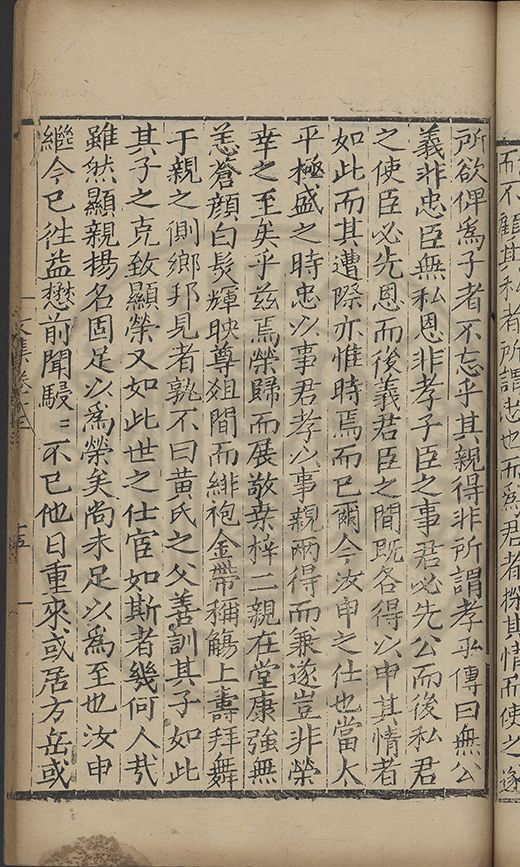 而不顧其私者所謂忠也而爲君者揆其情而使之遂
所欲俾爲子者不忘乎其親得非所謂孝乎傳曰無公
義非忠臣無私恩非孝子臣之事君必先公而後私君
之使臣必先恩而後義君臣之間既各得以申其情者
如此而其遭際亦惟時焉而已爾今汝申之仕也當太
平極盛之時忠以事君孝以事親兩得而兼遂豈非榮
幸之至矣乎兹焉榮歸而展敬桑梓二親在堂康強無
恙蒼顔白髮輝映尊爼間而緋袍金帶稱觴上壽拜舞
于親之側鄉邦見者孰不曰黃氏之父善訓其子如此
其子之克致顯榮又如此世之仕宦如斯者幾何人哉
雖然顯親揚名固足以爲榮矣尚未足以爲至也汝申
繼今已往益懋前聞駸〻不已他日重來或居方岳或
文集卷
十五